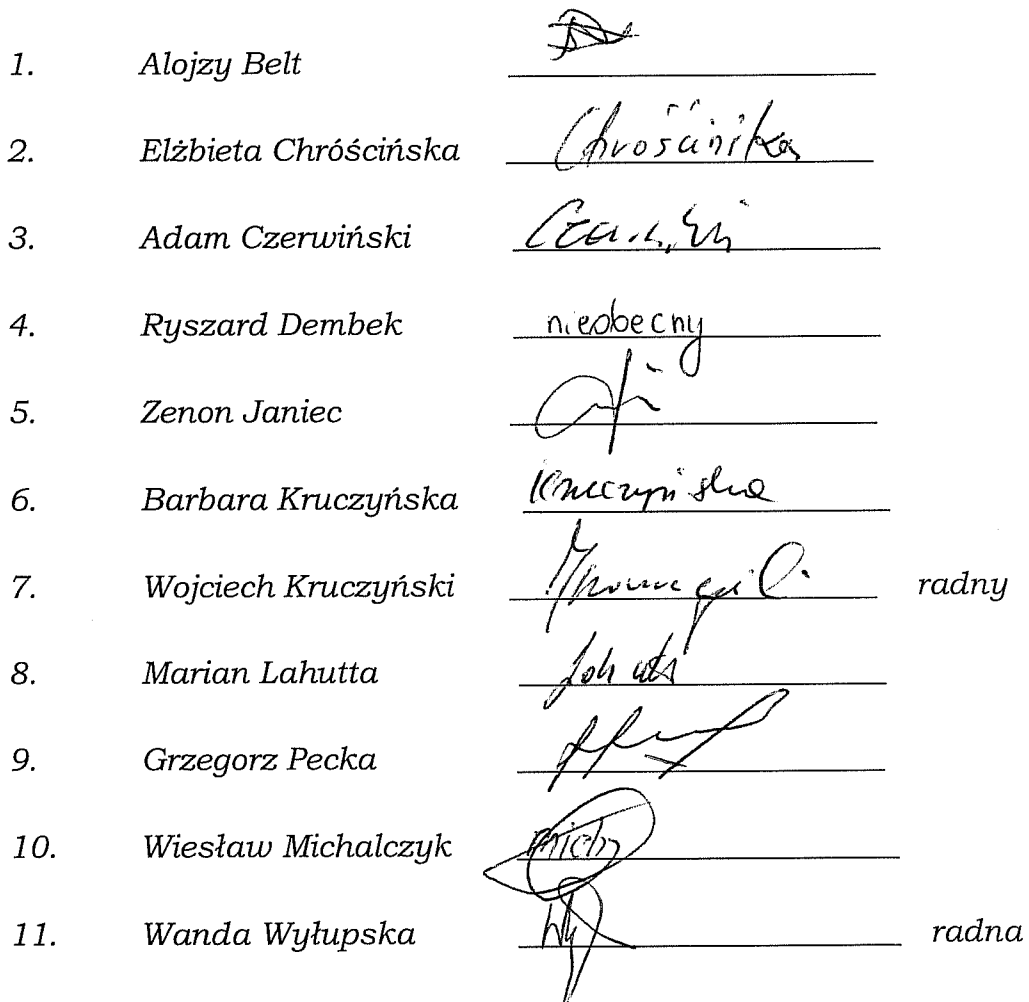 1. Alojzy Belt
2. Elżbieta Chróścińska Chróścińska
3. Adam Czerwiński
4. Ryszard Dembek nieobecny
5. Zenon Janiec
6. Barbara Kruczyńska Kruczyńska
7. Wojciech Kruczyński radny
8. Marian Lahutta
9. Grzegorz Pecka
10. Wiesław Michalczyk
11. Wanda Wyłupska radna